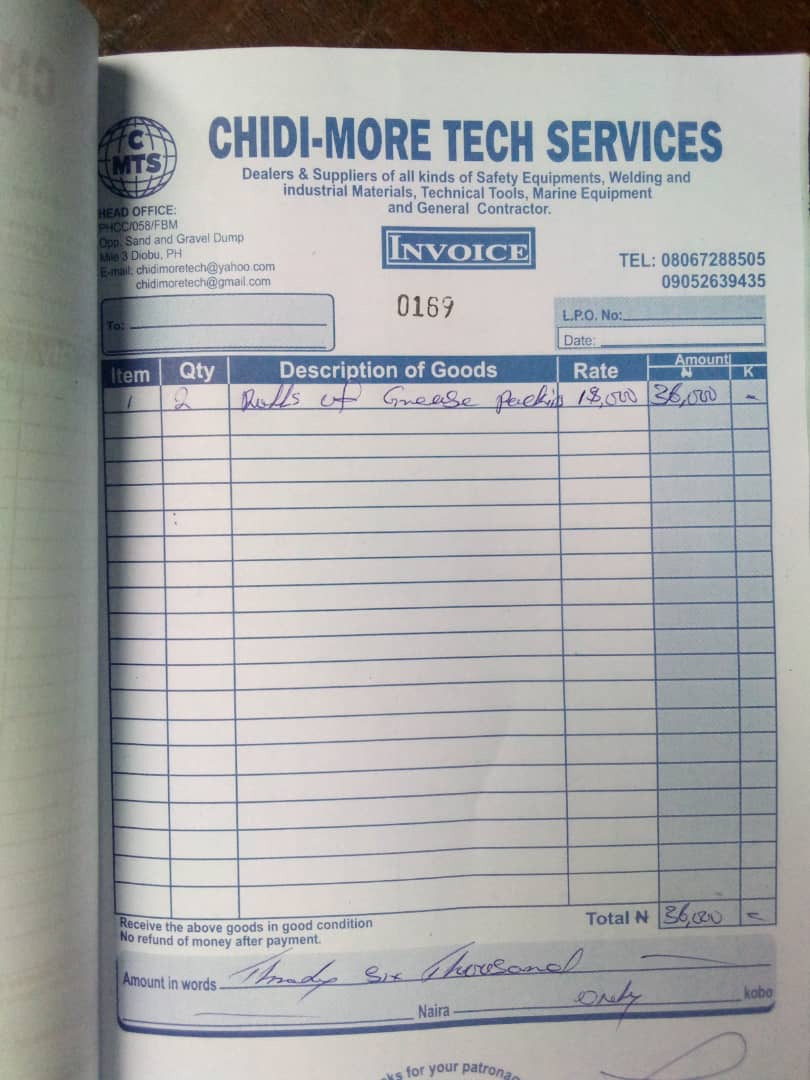 C
MTS
CHIDI-MORE TECH SERVICES
Dealers & Suppliers of all kinds of Safety Equipments, Welding and
industrial Materials, Technical Tools, Marine Equipment
and General Contractor.
HEAD OFFICE:
PHCC/058/FBM
Opp. Sand and Gravel Dump
Mile 3 Diobu, PH
E-mail: chidimoretech@yahoo.com
chidimoretech@gmail.com
INVOICE
TEL: 08067288505
09052639435
0169
To:
L.P.O. No:
Date:
Item Qty Description of Goods Rate Amount ₦ K
1 2 Rolls of Grease packin 18,000 36,000 -
Receive the above goods in good condition
No refund of money after payment.
Total ₦ 36,000 -
Amount in words Thirdy Six Thousand
Naira Only kobo
for your patrona